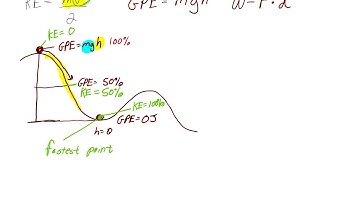 KE = mv
2
GPE = mgh W = F · d
KE = 0
GPE = mgh 100%
GPE = 50%
KE = 50%
KE = 100%
GPE = 0J
h = 0
fastest point